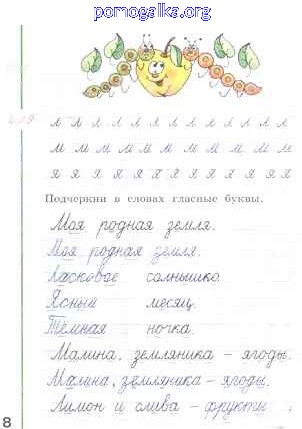 pomogalka.org
л м я
л л л л л л л л л л л л л
м м м м м м м м м м м
я я я я я я я я я я я я
Подчеркни в словах гласные буквы.
Моя родная земля.
Моя родная земля.
Ласковое солнышко.
Ясный месяц.
Тёмная ночка.
Малина, земляника – ягоды.
Малина, земляника – ягоды.
Лимон и слива – фрукты.
8